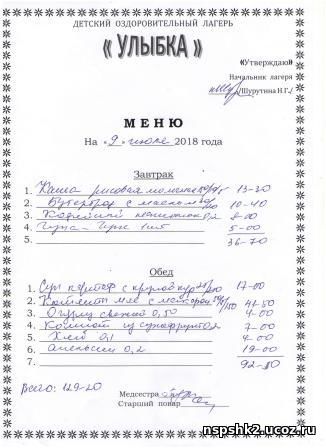 ДЕТСКИЙ ОЗДОРОВИТЕЛЬНЫЙ ЛАГЕРЬ
« УЛЫБКА »
«Утверждаю»
Начальник лагеря
/Шурутина Н.Г./
МЕНЮ
На « 9 » июле 2018 года
Завтрак
1. Каша рисовая 13-20
2. Бутерброд с маслом 10-40
3. Кофейный напиток 0,2 8-00
4. 1 шт 5-00
5. 36-70
Обед
1. Суп картоф с крупой 17-00
2. Котлет мяс с макарон 41-50
3. Огурец свежий 0,50 4-00
4. Компот из сухофрукт 0,2 7-00
5. Хлеб 0,1 4-00
6. Апельсин 0,2 19-00
7. 92-50
Всего: 129-20
Медсестра
Старший повар
nspshk2.ucoz.ru